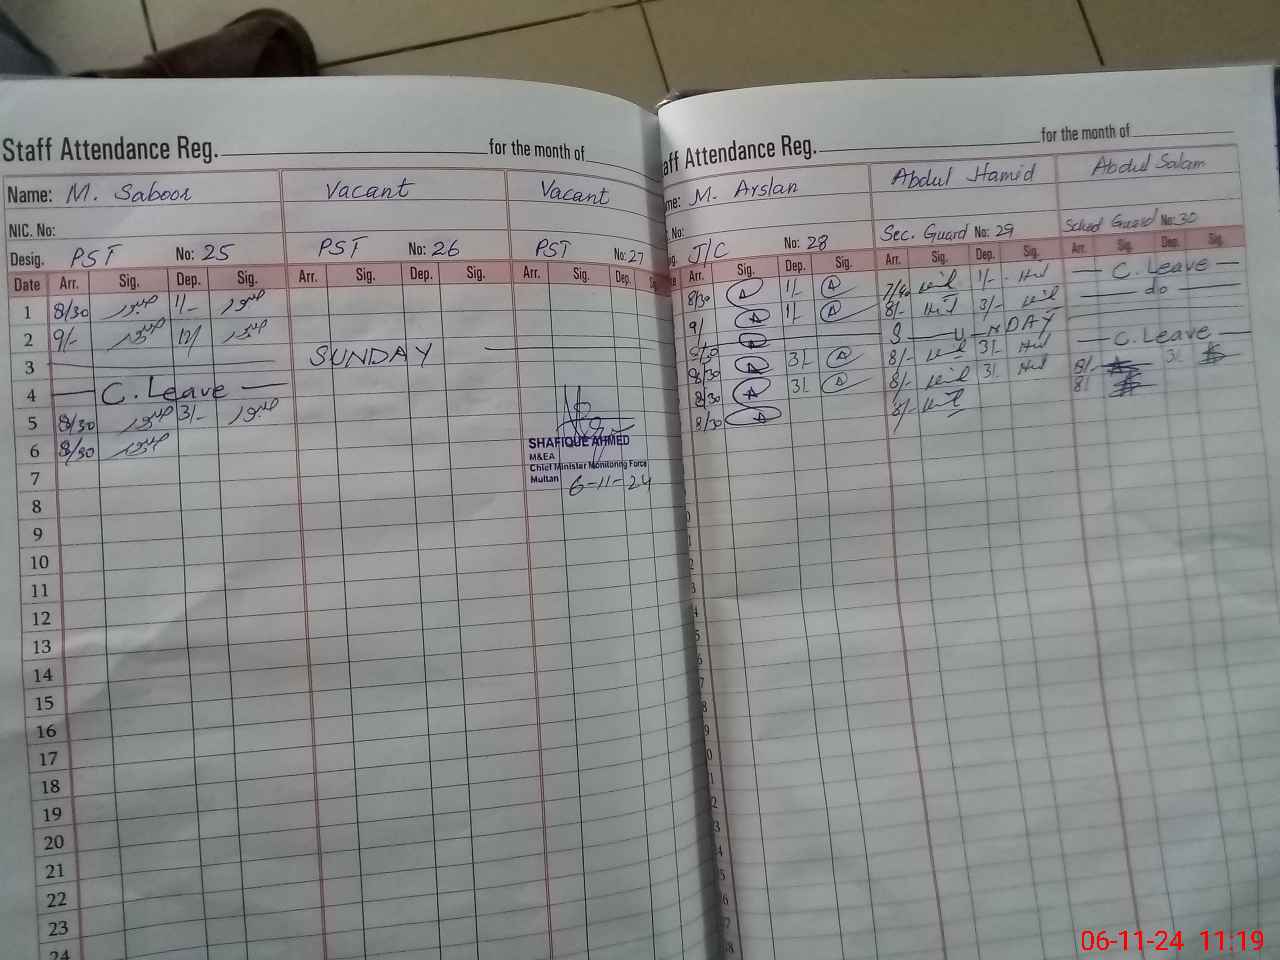 Staff Attendance Reg. for the month of
Name: M. Saboor Vacant Vacant
NIC. No:
Desig. PST No: 25 PST No: 26 PST No: 27
Date Arr. Sig. Dep. Sig. Arr. Sig. Dep. Sig. Arr. Sig. Dep.
1 8/30 صبور 1/- صبور
2 9/- صبور 12/ صبور
3 SUNDAY
4 C. Leave
5 8/30 صبور 3/- صبور
6 8/30 صبور
SHAFIQUE AHMED
M&EA
7 Chief Minister Monitoring Force
Multan 6-11-24
8
9
10
11
12
13
14
15
16
17
18
19
20
21
22
23
24
aff Attendance Reg. for the month of
me: M. Arslan Abdul Hamid Abdul Salam
No:
J/C No: 28 Sec. Guard No: 29 School Guard No: 30
Arr. Sig. Dep. Sig. Arr. Sig. Dep. Sig. Arr. Sig. Dep. Sig.
8/30 1/- 7/40 1/- C. Leave
9/ 1/- 8/- 3/- do
S U N DAY
8/30 3/- 8/- 3/- C. Leave
8/30 3/- 8/- 3/- 8/- 3/-
8/30 8/- 8/
06-11-24 11:19